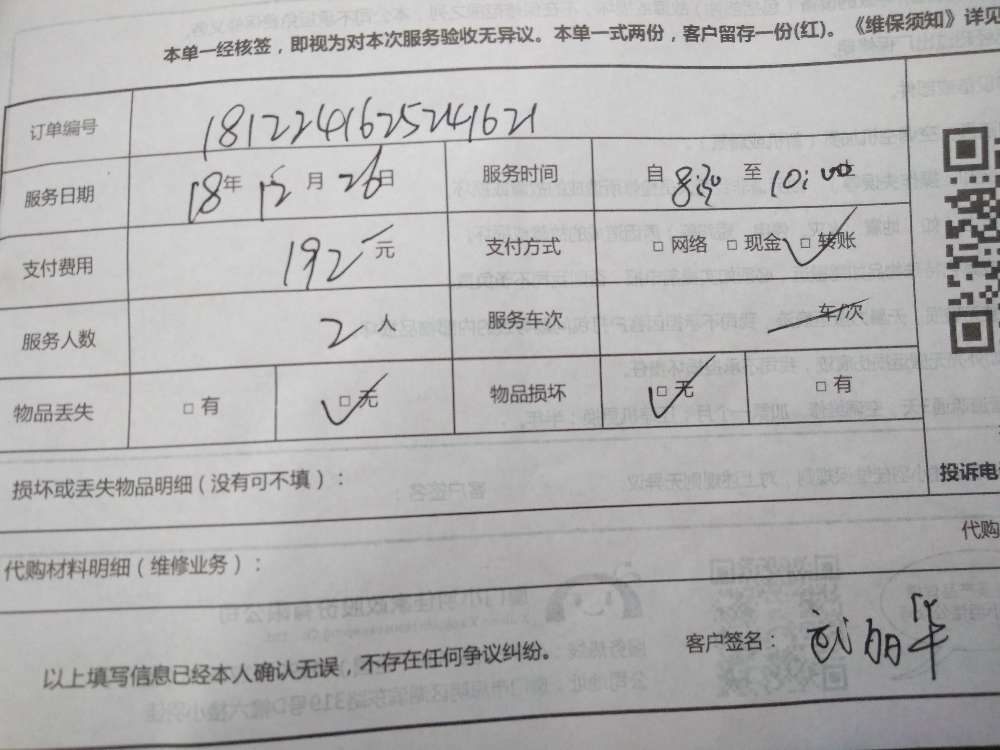 本单一经核签，即视为对本次服务验收无异议。本单一式两份，客户留存一份(红)。《维保须知》详见
订单编号 181224162524 1621
服务日期 18年 12月 26日 服务时间 自 8:30 至 10:00
支付费用 192元 支付方式 □ 网络 □ 现金 □ 转账
服务人数 2人 服务车次 车/次
物品丢失 □ 有 □ 无 物品损坏 □ 无 □ 有
损坏或丢失物品明细（没有可不填）：
投诉电
代购
代购材料明细（维修业务）：
以上填写信息已经本人确认无误，不存在任何争议纠纷。
客户签名：